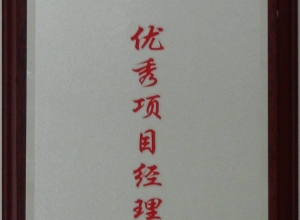 优秀项目经理